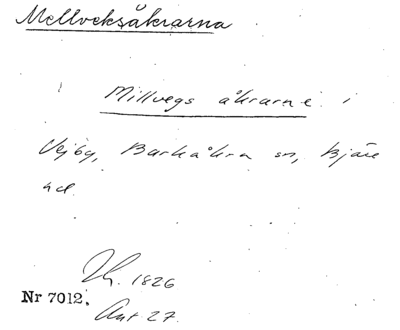 Mellveksåkrarna
Millvegs åkrarne i
Vejby, Barkåkra sn, Bjäre
hd.
1826
Nr 7012.
Akt 27.